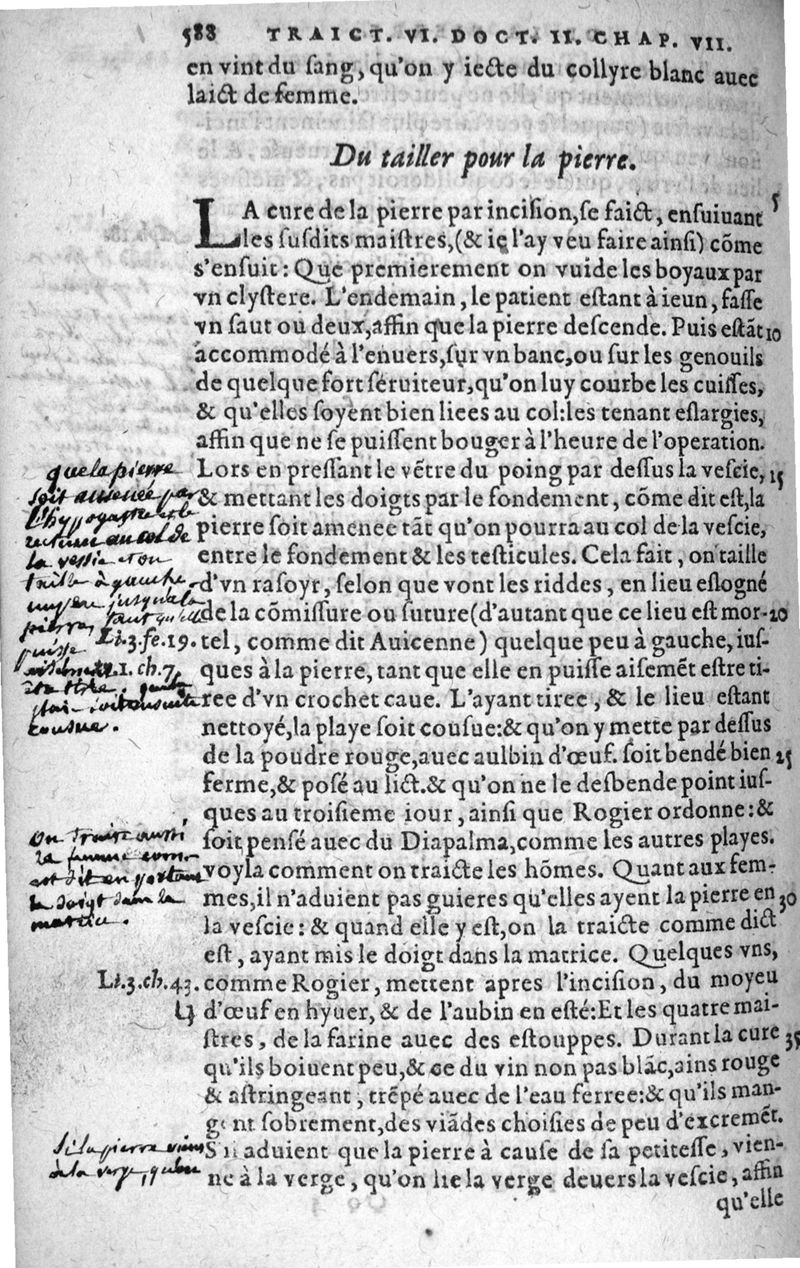 588 TRAICT. VI. DOCT. II. CHAP. VII.
en vint du ſang, qu'on y iecte du collyre blanc auec
laict de femme.
Du tailler pour la pierre.
5
LA cure de la pierre par inciſion, ſe faict, enſuiuant
les ſuſdits maiſtres, (& ie l'ay veu faire ainſi) cõme
s'enſuit: Que premierement on vuide les boyaux par
vn clyſtere. L'endemain, le patient eſtant à ieun, faſſe
vn ſaut ou deux, affin que la pierre deſcende. Puis eſtãt 10
accommodé à l'enuers, ſur vn banc, ou ſur les genouils
de quelque fort ſeruiteur, qu'on luy courbe les cuiſſes,
& qu'elles ſoyent bien liees au col: les tenant eſlargies,
affin que ne ſe puiſſent bouger à l'heure de l'operation.
Lors en preſſant le vẽtre du poing par deſſus la veſcie, 15
& mettant les doigts par le fondement, cõme dit eſt, la
pierre ſoit amenee tãt qu'on pourra au col de la veſcie,
entre le fondement & les teſticules. Cela fait, on taille
d'vn raſoyr, ſelon que vont les riddes, en lieu eſlogné
de la cõmiſſure ou ſuture (d'autant que ce lieu eſt mor- 20
tel, comme dit Auicenne) quelque peu à gauche, iuſ-
ques à la pierre, tant que elle en puiſſe aiſemẽt eſtre ti-
ree d'vn crochet caue. L'ayant tiree, & le lieu eſtant
nettoyé, la playe ſoit couſue: & qu'on y mette par deſſus
de la poudre rouge, auec aulbin d'œuf. ſoit bendé bien 25
ferme, & poſé au lict. & qu'on ne le desbende point iuſ-
ques au troiſieme iour, ainſi que Rogier ordonne: &
ſoit penſé auec du Diapalma, comme les autres playes.
voyla comment on traicte les hõmes. Quant aux fem-
mes, il n'aduient pas guieres qu'elles ayent la pierre en 30
la veſcie: & quand elle y eſt, on la traicte comme dict
eſt, ayant mis le doigt dans la matrice. Quelques vns,
comme Rogier, mettent apres l'inciſion, du moyeu
d'œuf en hyuer, & de l'aubin en eſté: Et les quatre mai-
ſtres, de la farine auec des eſtouppes. Durant la cure 35
qu'ils boiuent peu, & ce du vin non pas blãc, ains rouge
& aſtringeant, trẽpé auec de l'eau ferree: & qu'ils man-
gent ſobrement, des viãdes choiſies de peu d'excremẽt.
S'il aduient que la pierre à cauſe de ſa petiteſſe, vien-
ne à la verge, qu'on lie la verge deuers la veſcie, affin
qu'elle
que la pierre
soit amenée par
l'hypogastre et le
au col de
la vessie et on
taille à gauche
jusqu'a la
pierre
puisse
Li.3.fe.19.
1. ch.7.
cousue.
On traite aussi
la femme comme
est dit en portant
le doigt dans la
matrice.
Li.3.ch.43.
si la pierre vient
à la verge, qu'on